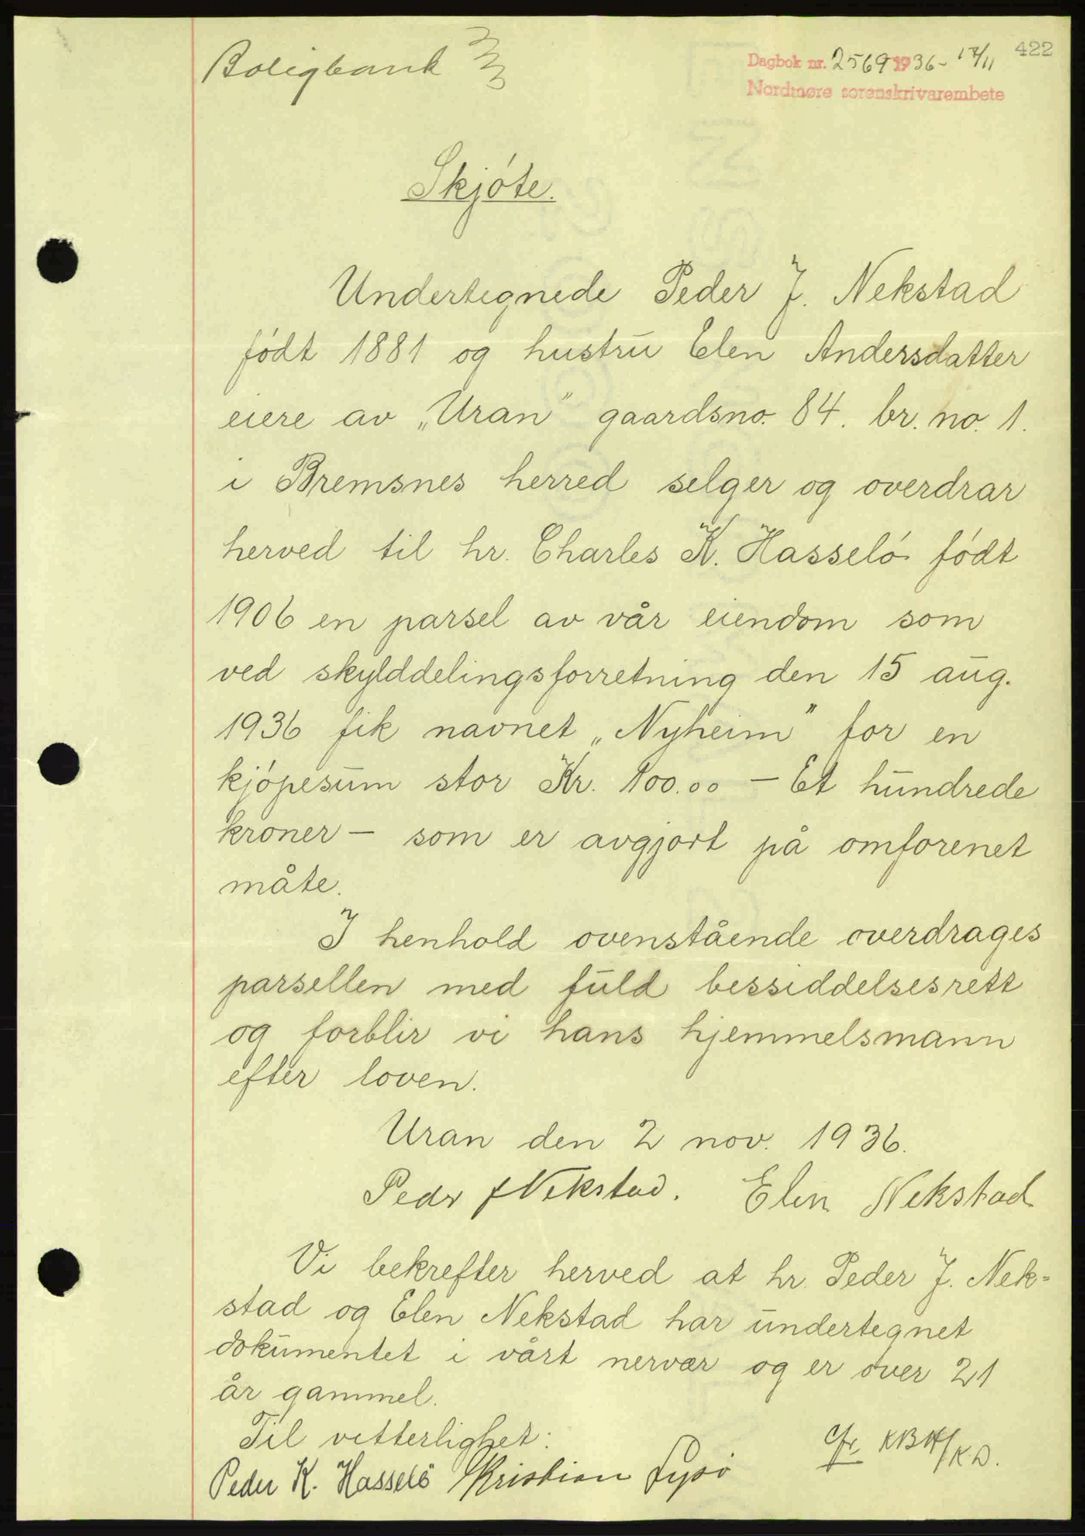 Boligbank
422
Dagbok nr. 2569 1936 - 17/11
Nordmøre sorenskrivarembete
Skjóte.
Undertegnede Peder J. Nekstad
født 1881 og hustru Elen Andersdatter
eiere av „Uran" gaardsno. 84. br. no. 1.
i Bremsnes herred selger og overdrar
herved til hr. Charles K. Hasseló født
1906 en parsel av vår eiendom som
ved skylddelingsforretning den 15 aug.
1936 fik navnet „Nyheim" for en
kjópesum stor Kr. 100.00 — Et hundrede
kroner — som er avgjort på omforenet
måte.
I henhold ovenstående overdrages
parsellen med fuld bessiddelsesrett
og forblir vi hans hjemmelsmann
efter loven.
Uran den 2 nov. 1936.
Peder J Nekstad. Elen Nekstad
Vi bekrefter herved at hr. Peder J. Nek-
stad og Elen Nekstad har undertegnet
dokumentet i vårt nervær og er over 21
år gammel.
Til vitterlighet:
Peder K. Hasselö Kristian Lysö